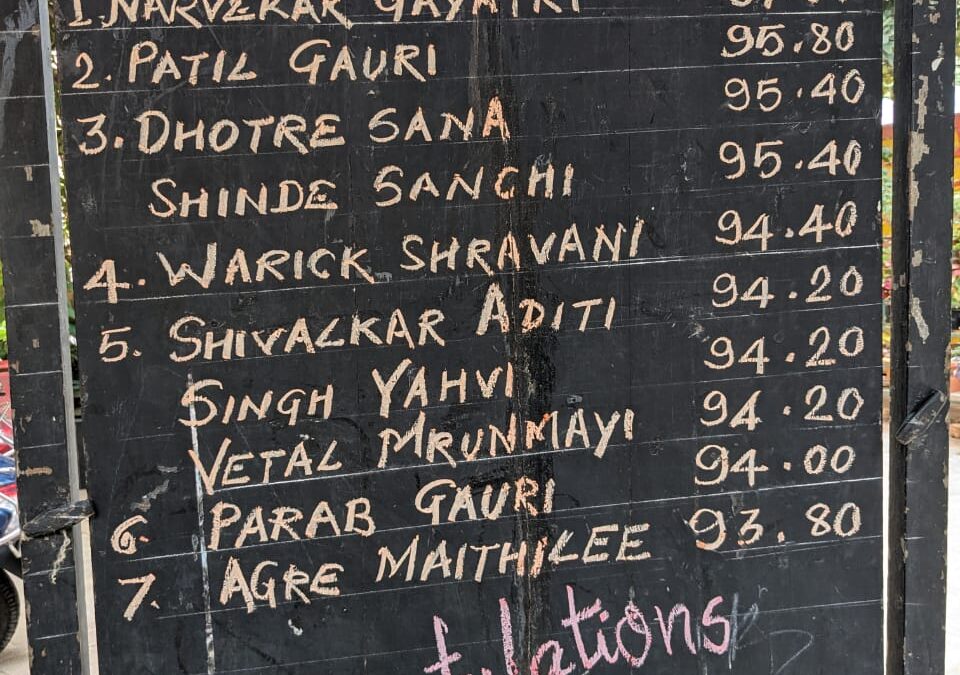 1. NARVEKAR GAYATRI
2. PATIL GAURI 95.80
3. DHOTRE SANA 95.40
SHINDE SANCHI 95.40
4. WARICK SHRAVANI 94.40
5. SHIVALKAR ADITI 94.20
SINGH YAHVI 94.20
VETAL MRUNMAYI 94.20
6. PARAB GAURI 94.00
7. AGRE MAITHILEE 93.80